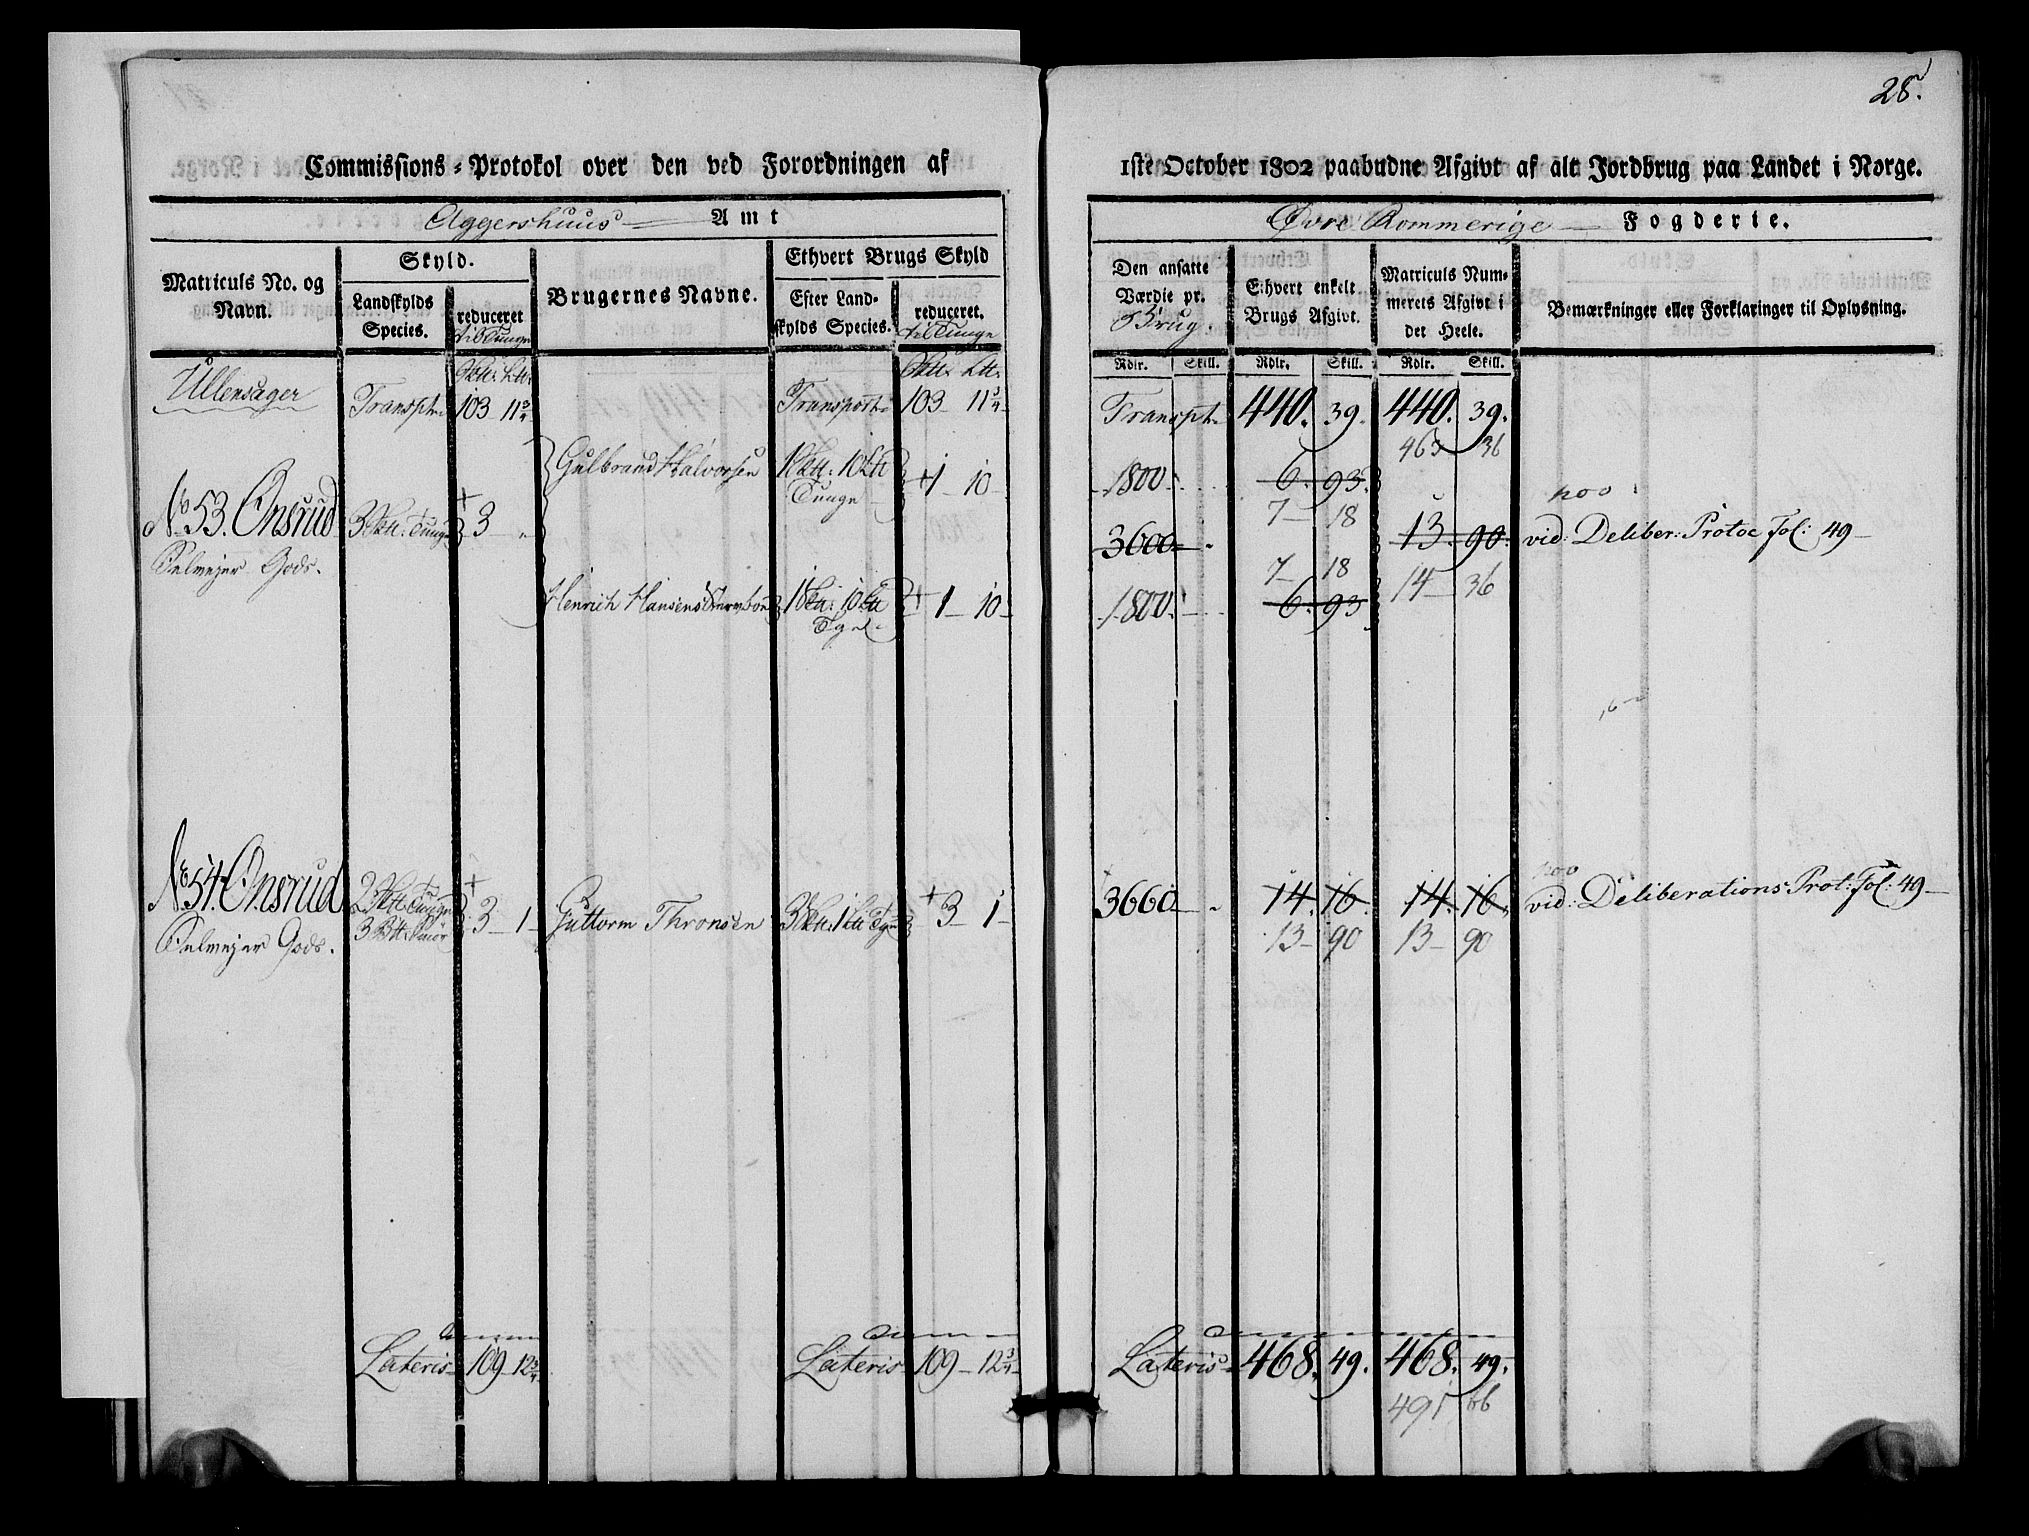 28.
Commissions-Protokol over den ved Forordningen af 1ste October 1802 paabudne Afgivt af alt Jordbrug paa Landet i Norge.
Aggershuus Amt
Øvre Rommerige Fogderie.
Matriculs No. og Navn.
Skyld.
Landskylds Species.
reduceret til Tunge
Brugernes Navne.
Ethvert Brugs Skyld
Efter Landskylds Species.
reduceret. til Tunge
Den ansatte Værdie pr. Brug.
Ethvert enkelt Brugs Afgivt.
Matriculs Nummerets Afgivt i det Heele.
Bemærkninger eller Forklaringer til Oplysning.
Rdlr. Skill. Rdlr. Skill. Rdlr. Skill.
Ullensager Transpt. 103 11¾ Transport 103 11¾ Transpt. 440. 39. 440. 39.
463 36
Gulbrand Halvorsen 1 10 Tunge +1 10 1800. 6. 93.
7 18
No 53. Onsrud 3 Tunge + 3 3600 13. 90. vid: Deliber: Protoc Fol: 49
Gods.
7 18 14 36
Henrich Hansens 1 10 Tge +1 10 1800. 6. 93
No 54. Onsrud 2 Tunge 3 Smör + 3 1 Guttorm Thronsen 3 1 Tge +3 1 3660 14. 16. 14. 16. vid: Deliberations Prot: Fol: 49
Gods.
13 90 13 90
Lateris 109 12¾ Lateris 109 12¾ Lateris 468. 49. 468. 49.
491